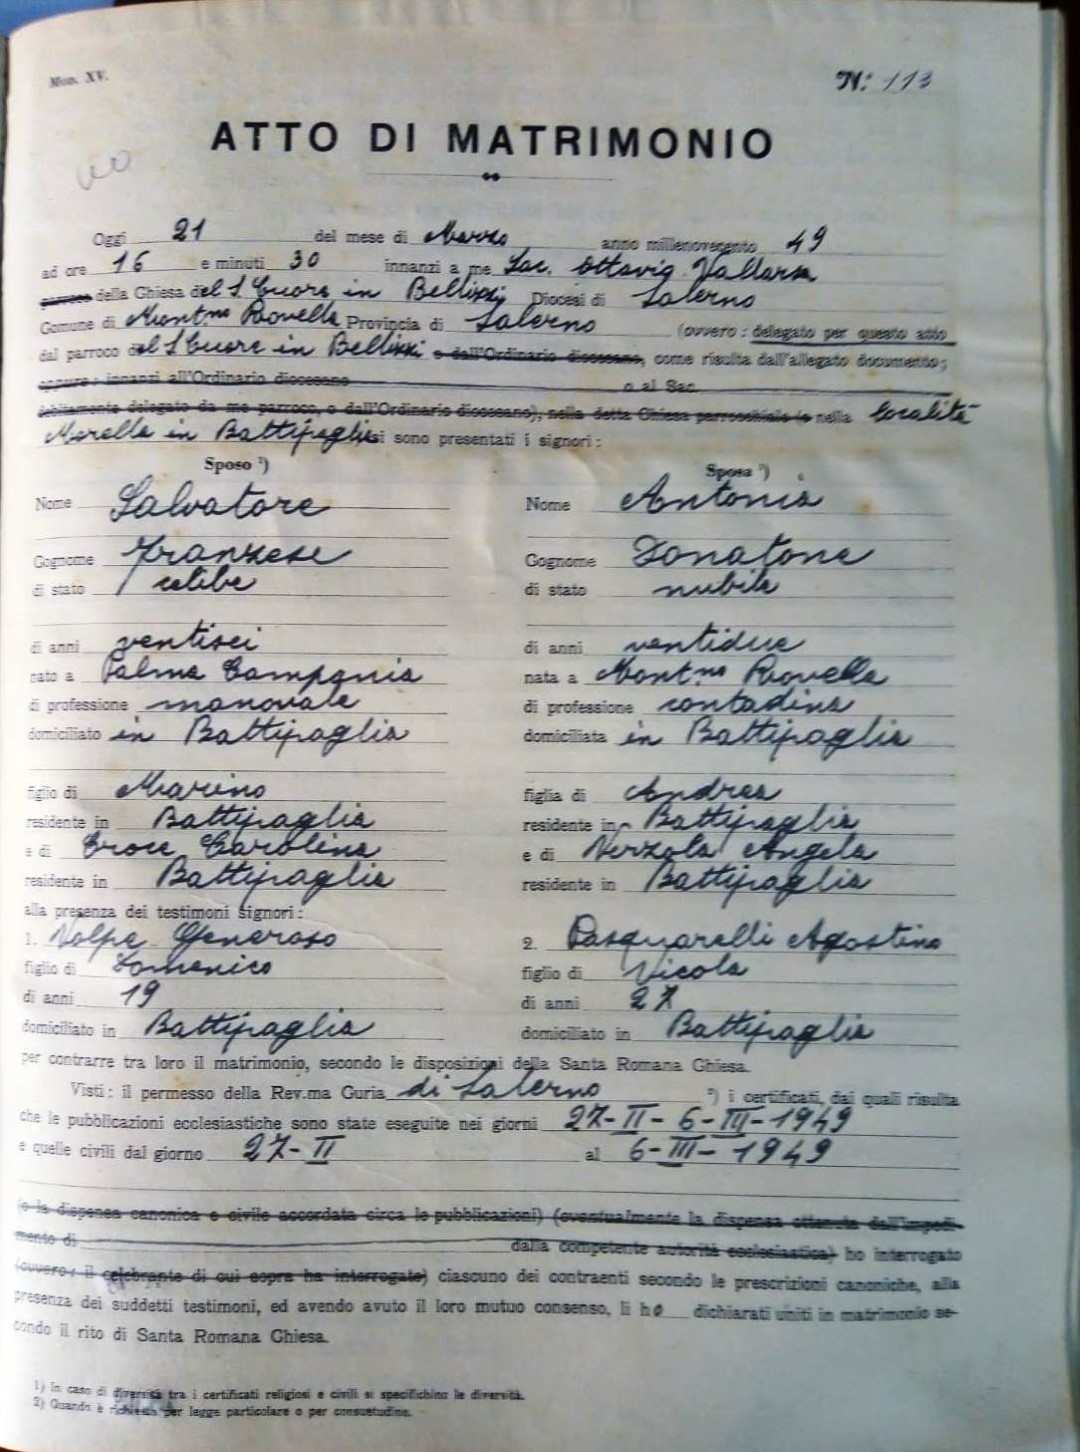 Mon. XV.
N. 113
ATTO DI MATRIMONIO
Oggi 21 del mese di Marzo anno millenovecento 49
ad ore 16 e minuti 30 innanzi a me Sac. Ottavio
parroco della Chiesa del S. Cuore in Bellizzi Diocesi di Salerno
Comune di Mont.no Rovella Provincia di Salerno (ovvero: delegato per questo atto
dal parroco del S. Cuore in Bellizzi o dall'Ordinario diocesano, come risulta dall'allegato documento;
oppure: innanzi all'Ordinario diocesano o al Sac.
debitamente delegato da me parroco, o dall'Ordinario diocesano), nella detta Chiesa parrocchiale (o nella località
Morella in Battipaglia si sono presentati i signori:
Sposo ¹)
Nome Salvatore
Cognome Franzese
di stato celibe
di anni ventisei
nato a Palma Campania
di professione manovale
domiciliato in Battipaglia
figlio di Marino
residente in Battipaglia
e di Croce Carolina
residente in Battipaglia
Sposa ¹)
Nome Antonia
Cognome Donatone
di stato nubile
di anni ventidue
nata a Mont.no Rovella
di professione contadina
domiciliata in Battipaglia
figlia di Andrea
residente in Battipaglia
e di Angela
residente in Battipaglia
alla presenza dei testimoni signori:
1. Volpe Generoso
figlio di Domenico
di anni 19
domiciliato in Battipaglia
2. Pasquarelli Agostino
figlio di Nicola
di anni 27
domiciliato in Battipaglia
per contrarre tra loro il matrimonio, secondo le disposizioni della Santa Romana Chiesa.
Visti: il permesso della Rev.ma Curia di Salerno ²) i certificati, dai quali risulta
che le pubblicazioni ecclesiastiche sono state eseguite nei giorni 27-II-6-III-1949
e quelle civili dal giorno 27-II al 6-III-1949
(o la dispensa canonica e civile accordata circa le pubblicazioni) (eventualmente la dispensa ottenuta dall'impedi-
mento di dalla competente autorità ecclesiastica) ho interrogato
(ovvero: il celebrante di cui sopra ha interrogato) ciascuno dei contraenti secondo le prescrizioni canoniche, alla
presenza dei suddetti testimoni, ed avendo avuto il loro mutuo consenso, li ho dichiarati uniti in matrimonio se-
condo il rito di Santa Romana Chiesa.
1) In caso di diversità tra i certificati religiosi e civili si specifichino le diversità.
2) Quando è richiesta per legge particolare o per consuetudine.